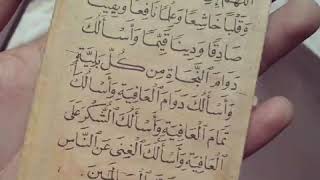 وَقَلْبًا خَاشِعًا وَعِلْمًا نَافِعًا وَيَقِينًا
صَادِقًا وَدِينًا قَيِّمًا وَأَسْأَلُكَ
دَوَامَ النَّجَاةِ مِنْ كُلِّ بَلِيَّةٍ
وَأَسْأَلُكَ دَوَامَ الْعَافِيَةِ وَأَسْأَلُكَ
تَمَامَ الْعَافِيَةِ وَأَسْأَلُكَ الشُّكْرَ عَلَى
الْعَافِيَةِ وَأَسْأَلُكَ الْغِنَى عَنِ النَّاسِ